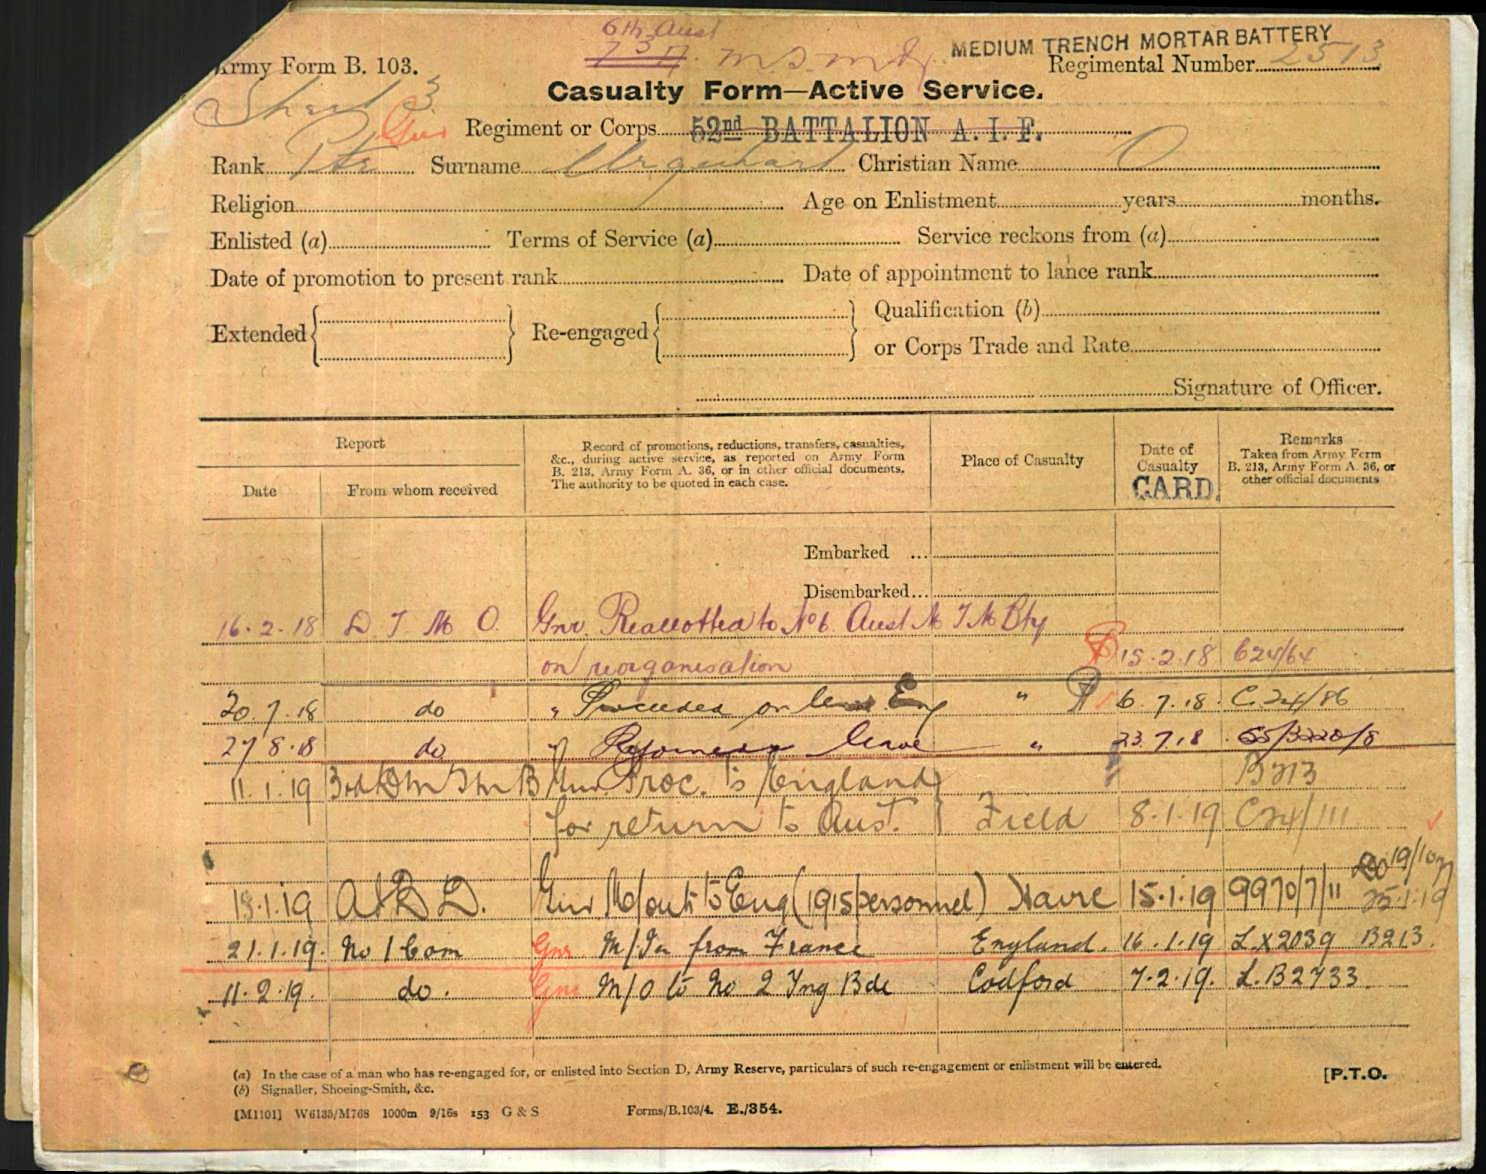 6th Aust
MEDIUM TRENCH MORTAR BATTERY
Army Form B. 103.
Regimental Number 2513
Sheet 3
Casualty Form—Active Service.
Gnr Regiment or Corps 52nd BATTALION A.I.F.
Rank Pte Surname Urquhart Christian Name O
Religion Age on Enlistment years months.
Enlisted (a) Terms of Service (a) Service reckons from (a)
Date of promotion to present rank Date of appointment to lance rank
Extended Re-engaged Qualification (b)
or Corps Trade and Rate
Signature of Officer.
Report
Date From whom received
Record of promotions, reductions, transfers, casualties,
&c., during active service, as reported on Army Form
B. 213, Army Form A. 36, or in other official documents.
The authority to be quoted in each case.
Place of Casualty
Date of
Casualty
CARD.
Remarks
Taken from Army Form
B. 213, Army Form A. 36, or
other official documents
Embarked ...
Disembarked...
16.2.18 D T M O. Gnr. Reallotted to No 6. Aust M T M Bty
on reorganisation 15.2.18 624/64
20.7.18 do " Proceeded on leave Eng " 6.7.18. C.24/86
27.8.18 do " Rejoined leave " 23.7.18
11.1.19 Gnr. Proc. to England B213
for return to Aust. } Field 8.1.19 C24/111
18.1.19 Gnr M/out to Eng (1915 personnel) Havre 15.1.19 9970/7/11 25.1.19
21.1.19. No 1 Com Gnr. M/In from France England. 16.1.19 L.X2039 B213.
11.2.19. do. Gnr M/O to No 2 Trng Bde Codford 7.2.19. L.B2733.
(a) In the case of a man who has re-engaged for, or enlisted into Section D, Army Reserve, particulars of such re-engagement or enlistment will be entered.
(b) Signaller, Shoeing-Smith, &c.
[P.T.O.
[M1101] W6135/M768 1000m 9/16s 153 G & S Forms/B.103/4. E./354.